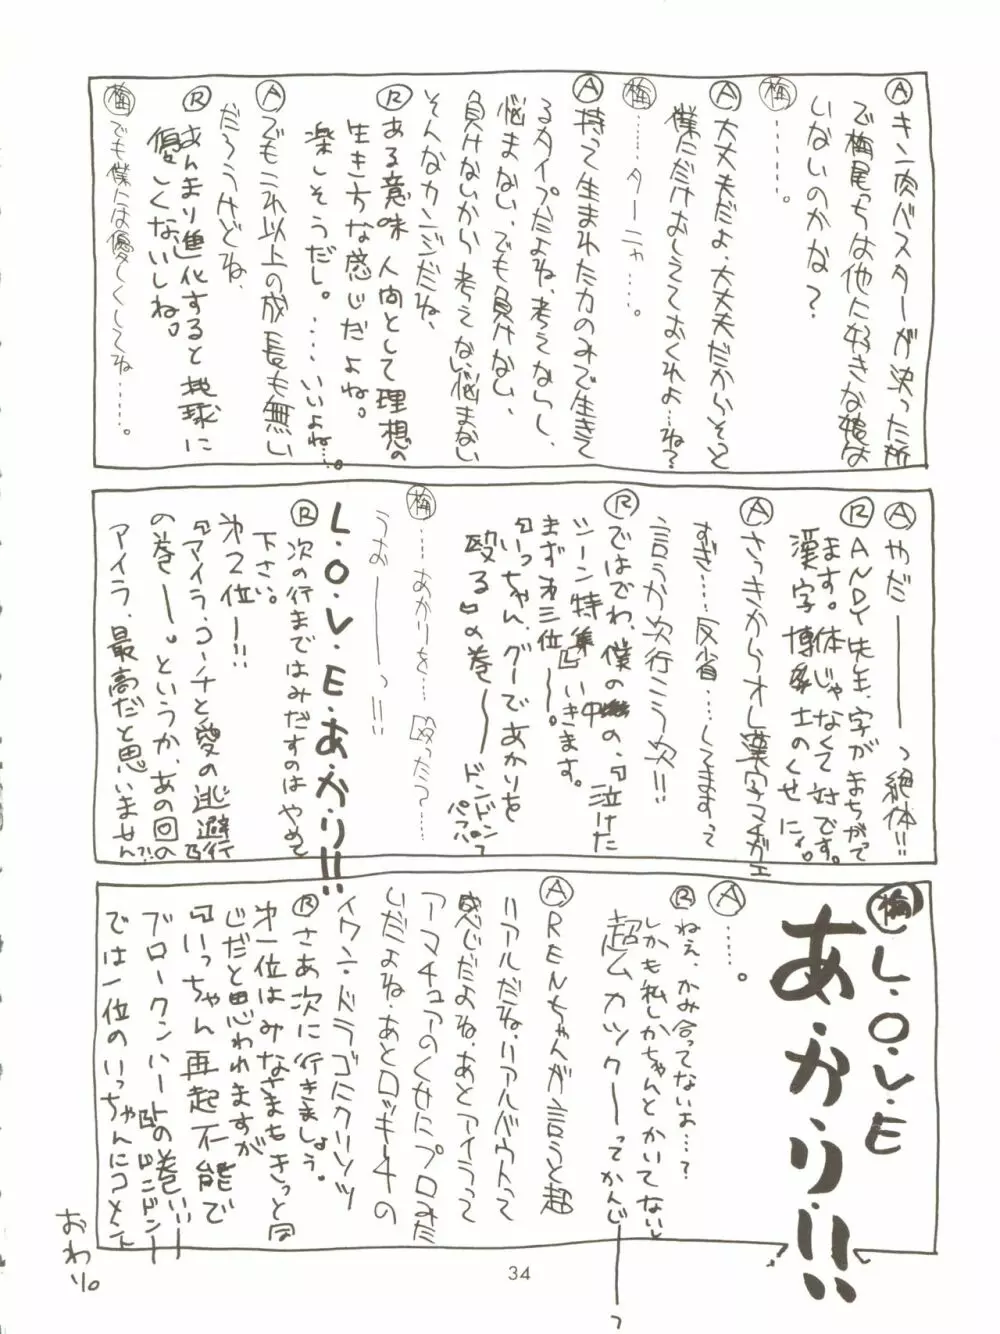 Ⓐキン肉バスターが決った所
で梅尾っちは他に好きな娘は
いないのかな?
㊙梅………。
Ⓐ大丈夫だよ、大丈夫だからそっと
僕にだけおしえておくれよ…ね?
梅………ターニャ……。
Ⓐ持って生まれた力のみで生きて
るタイプだよね、考えてないし、
悩まない、でも負けない、
負けないから考えない、悩まない
そんなカンジだね、
Ⓡある意味人間として理想の
生き方な感じだよね。
楽しそうだし。……いいよね…。
Ⓐでもこれ以上の成長も無い
だろうけどね、
Ⓡあんまり進化すると地球に
優しくないしね。
梅でも僕には優しくしてね……。
Ⓐやだ―――っ絶体!!
ⓇANDY先生、字がまちがって
ます。体じゃなくて対です。
漢字博士のくせによ。
Ⓐさっきからオレ漢字マチガエ
すぎ…、反省…してますって
言うか次行こう次!!
Ⓡではでわ、僕の中の、『泣けた
シーン特集』いきます。
まず第三位―。
『いっちゃん、グーであかりを
殴る』の巻〜―ドンドンパフパフっ
梅……あかりを…殴った?……
うお――っ!!
L・O・V・E・あ・か・り!!
Ⓡ次の行まではみだすのはやめて
下さい。
第2位―!!
『アイラ・コーチと愛の逃避行』
の巻―。というか、あの回の
アイラ、最高だと思いません?!
梅L・O・V・E
あ・か・り・!!
Ⓐ……。
Ⓡねぇ、かみ合ってないよ…?
しかも私しかちゃんとかいてないし
超ムカツク――ってかんじ――っ
ⒶRENちゃんが言うと超
リアルだね、リアルバウトって
感じだよね、あとアイラって
アーマチュアのくせにプロみた
いだよね、あとロッキー4の
イワン・ドラゴにクリソツ
Ⓡさあ次に行きましょう。
第一位はみなさまもきっと同
じだと思われますが
『いっちゃん再起不能で
ブロークンハート』の巻い――
ドンドン――
では一位のいっちゃんにコメント
おわり。
34